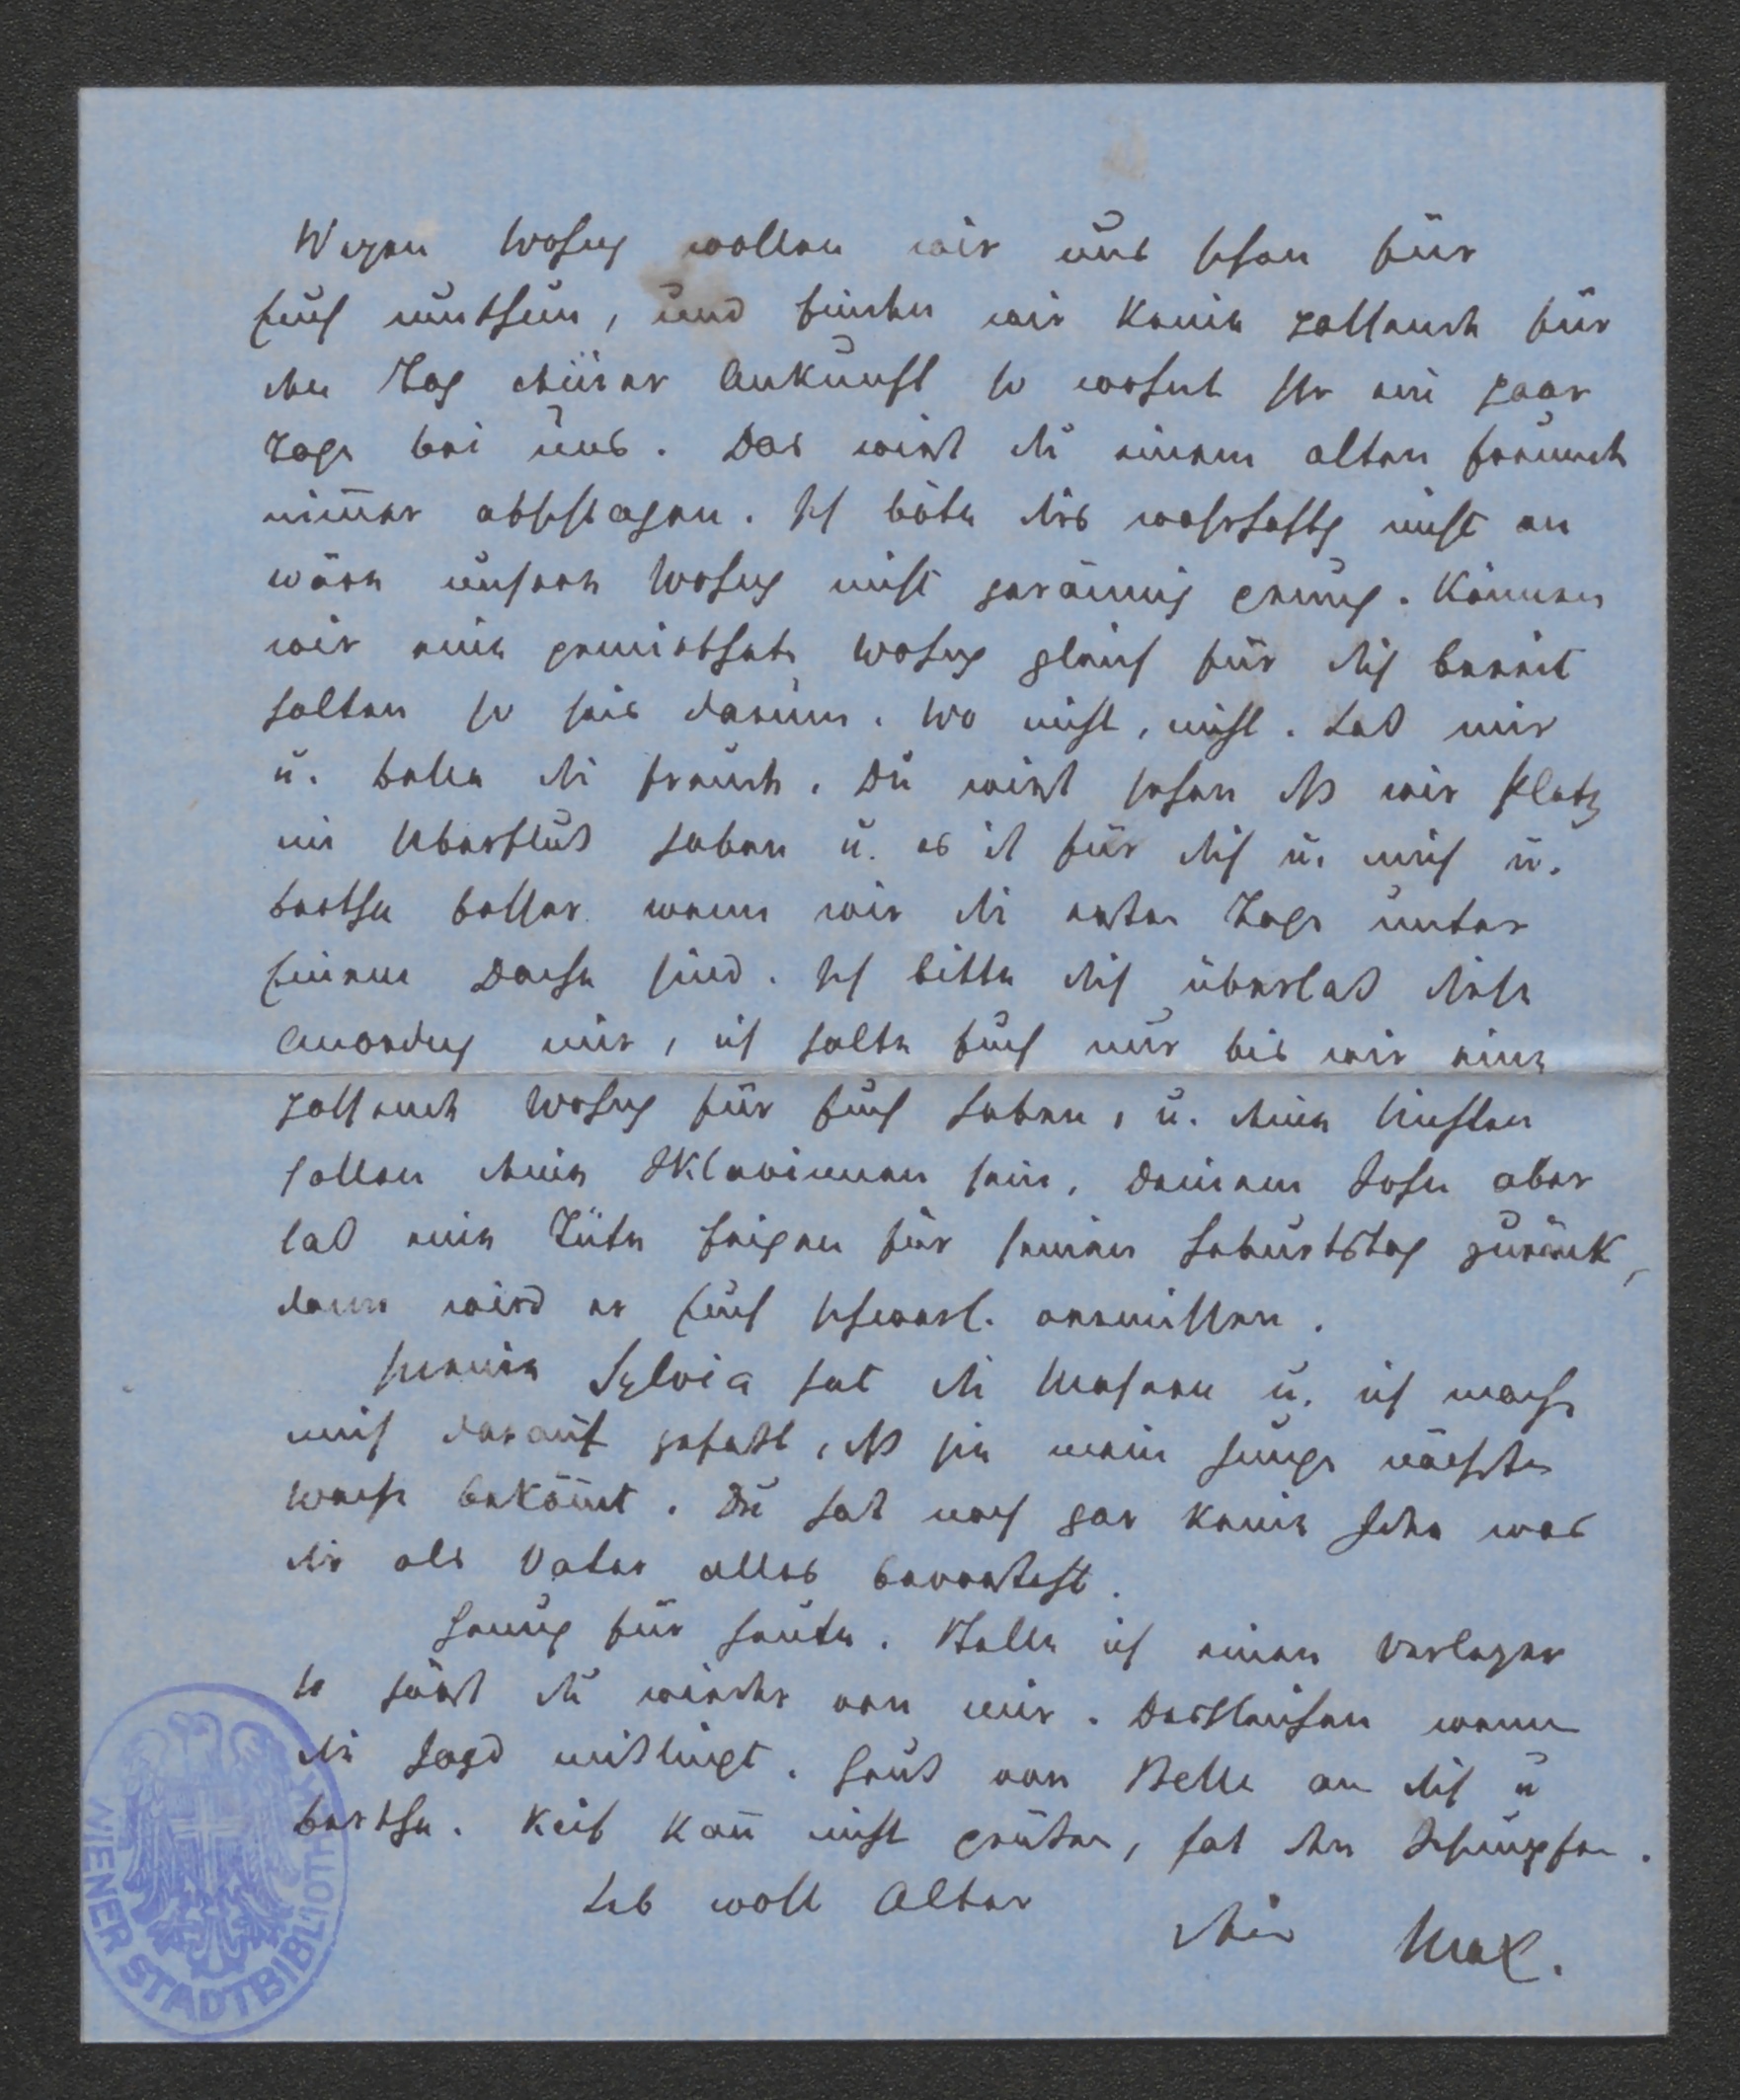 Wegen Wohng wollen wir uns schon für
Euch umthun, und finden wir keine passende für
den Tag deiner Ankunft so wohnt Ihr ein paar
Tage bei uns. Das wirst du einem alten Freunde
nimmer abschlagen. Ich böte dirs wahrhaftig nicht an
wäre unsere Wohng nicht geräumig genug. Können
wir eine gemiethete Wohng gleich für dich bereit
halten so seis darum. Wo nicht, nicht. Laß mir
u. Belle die Freude. Du wirst sehen dß wir Platz
im Uberfluß haben u. es ist für dich u. mich u.
Berthe besser wenn wir die ersten Tage unter
Einem Dache sind. Ich bitte dich überlaß diese
Anordng mir, ich halte Euch nur bis wir eine
passende Wohng für Euch haben, u. deine Nichten
sollen deine Sklavinnen sein. Deinem Sohn aber
laß eine Düte Feigen für seinen Geburtstag zurück,
dann wird er Euch schwerl. vermissen.
Meine Sylvia hat die Masern u. ich mache
mich darauf gefaßt, dß sie mein Junge nächste
Woche bekömt. Du hast noch gar keine Idee was
dir als Vater alles bevorsteht.
Genug für heute. Stelle ich einen Verleger
so hörst du wieder von mir. Desgleichen wenn
die Jagd mislingt. Gruß von Belle an dich u
Berthe. Keib kan̄ nicht grüßen, hat den Schnupfen.
Leb wohl Alter
dein Max.
WIENER STADTBIBLIOTHEK